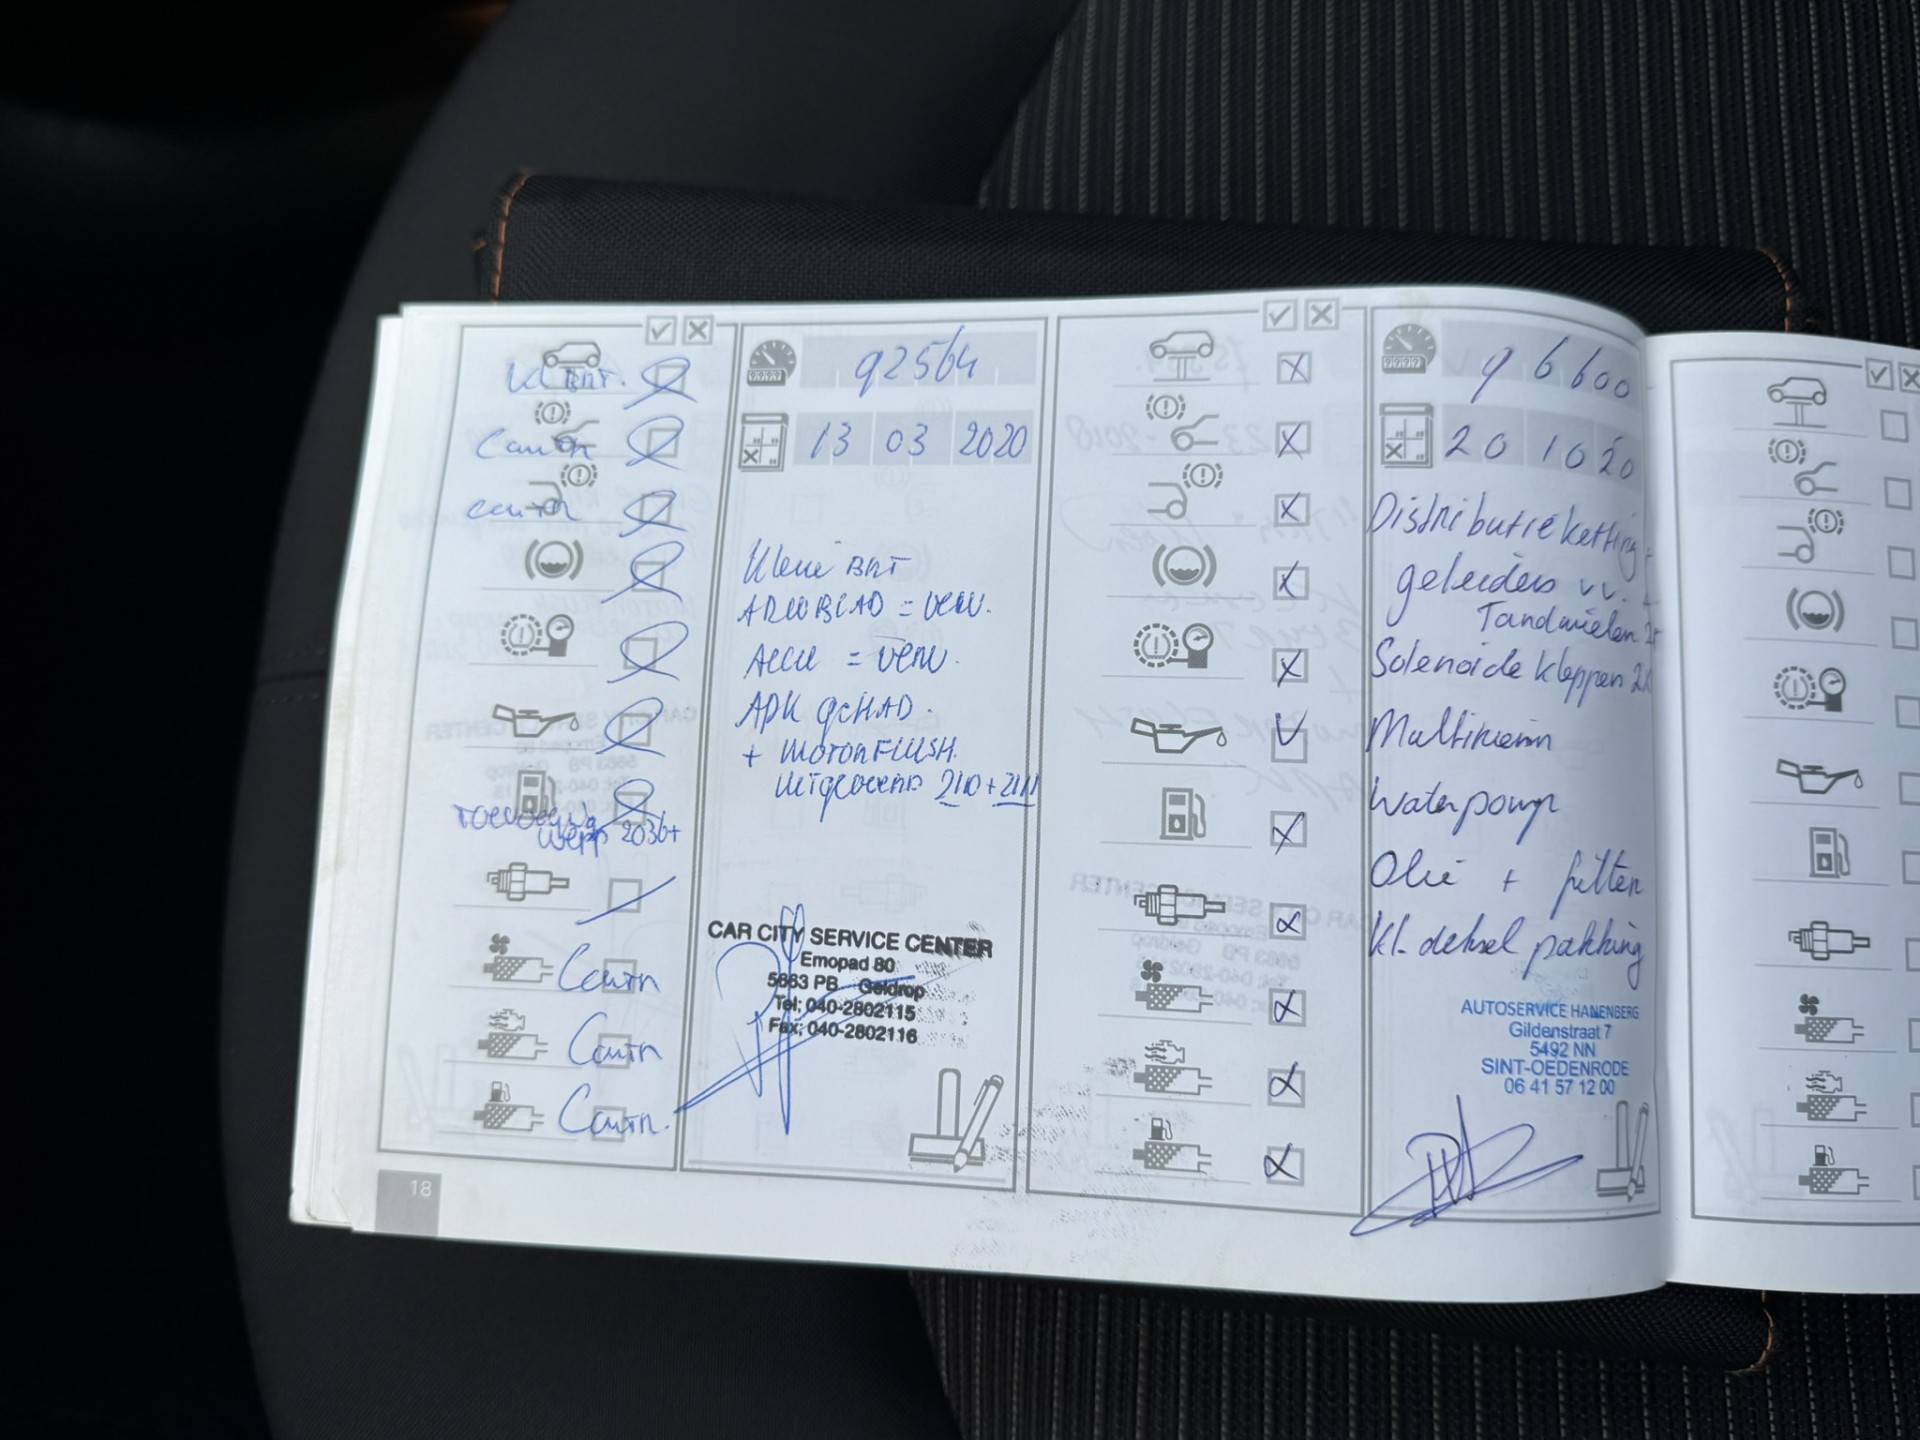 Kl BRT.
Contr
contr
Toevoeging
WEPP 2036+
Contr
Contr
Contr.
18
92564
13 03 2020
Kleine BRT
= verv.
Accu = verv.
APK gehad.
+ motorflush.
2110 + 2111
CAR CITY SERVICE CENTER
Emopad 80
5663 PB Geldrop
Tel; 040-2802115
Fax; 040-2802116
96600
20 10 20
Distributieketting +
geleiders vv.
Tandwielen 2x
Solenoide kleppen 2x
Multiriem
Waterpomp
Olie + filter
Kl. deksel pakking
AUTOSERVICE HANENBERG
Gildenstraat 7
5492 NN
SINT-OEDENRODE
06 41 57 12 00